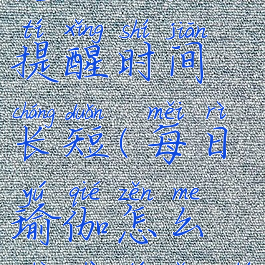 tí xǐng shí jiān
提醒时间
cháng duǎn měi rì
长短(每日
yú qié zěn me
瑜伽怎么